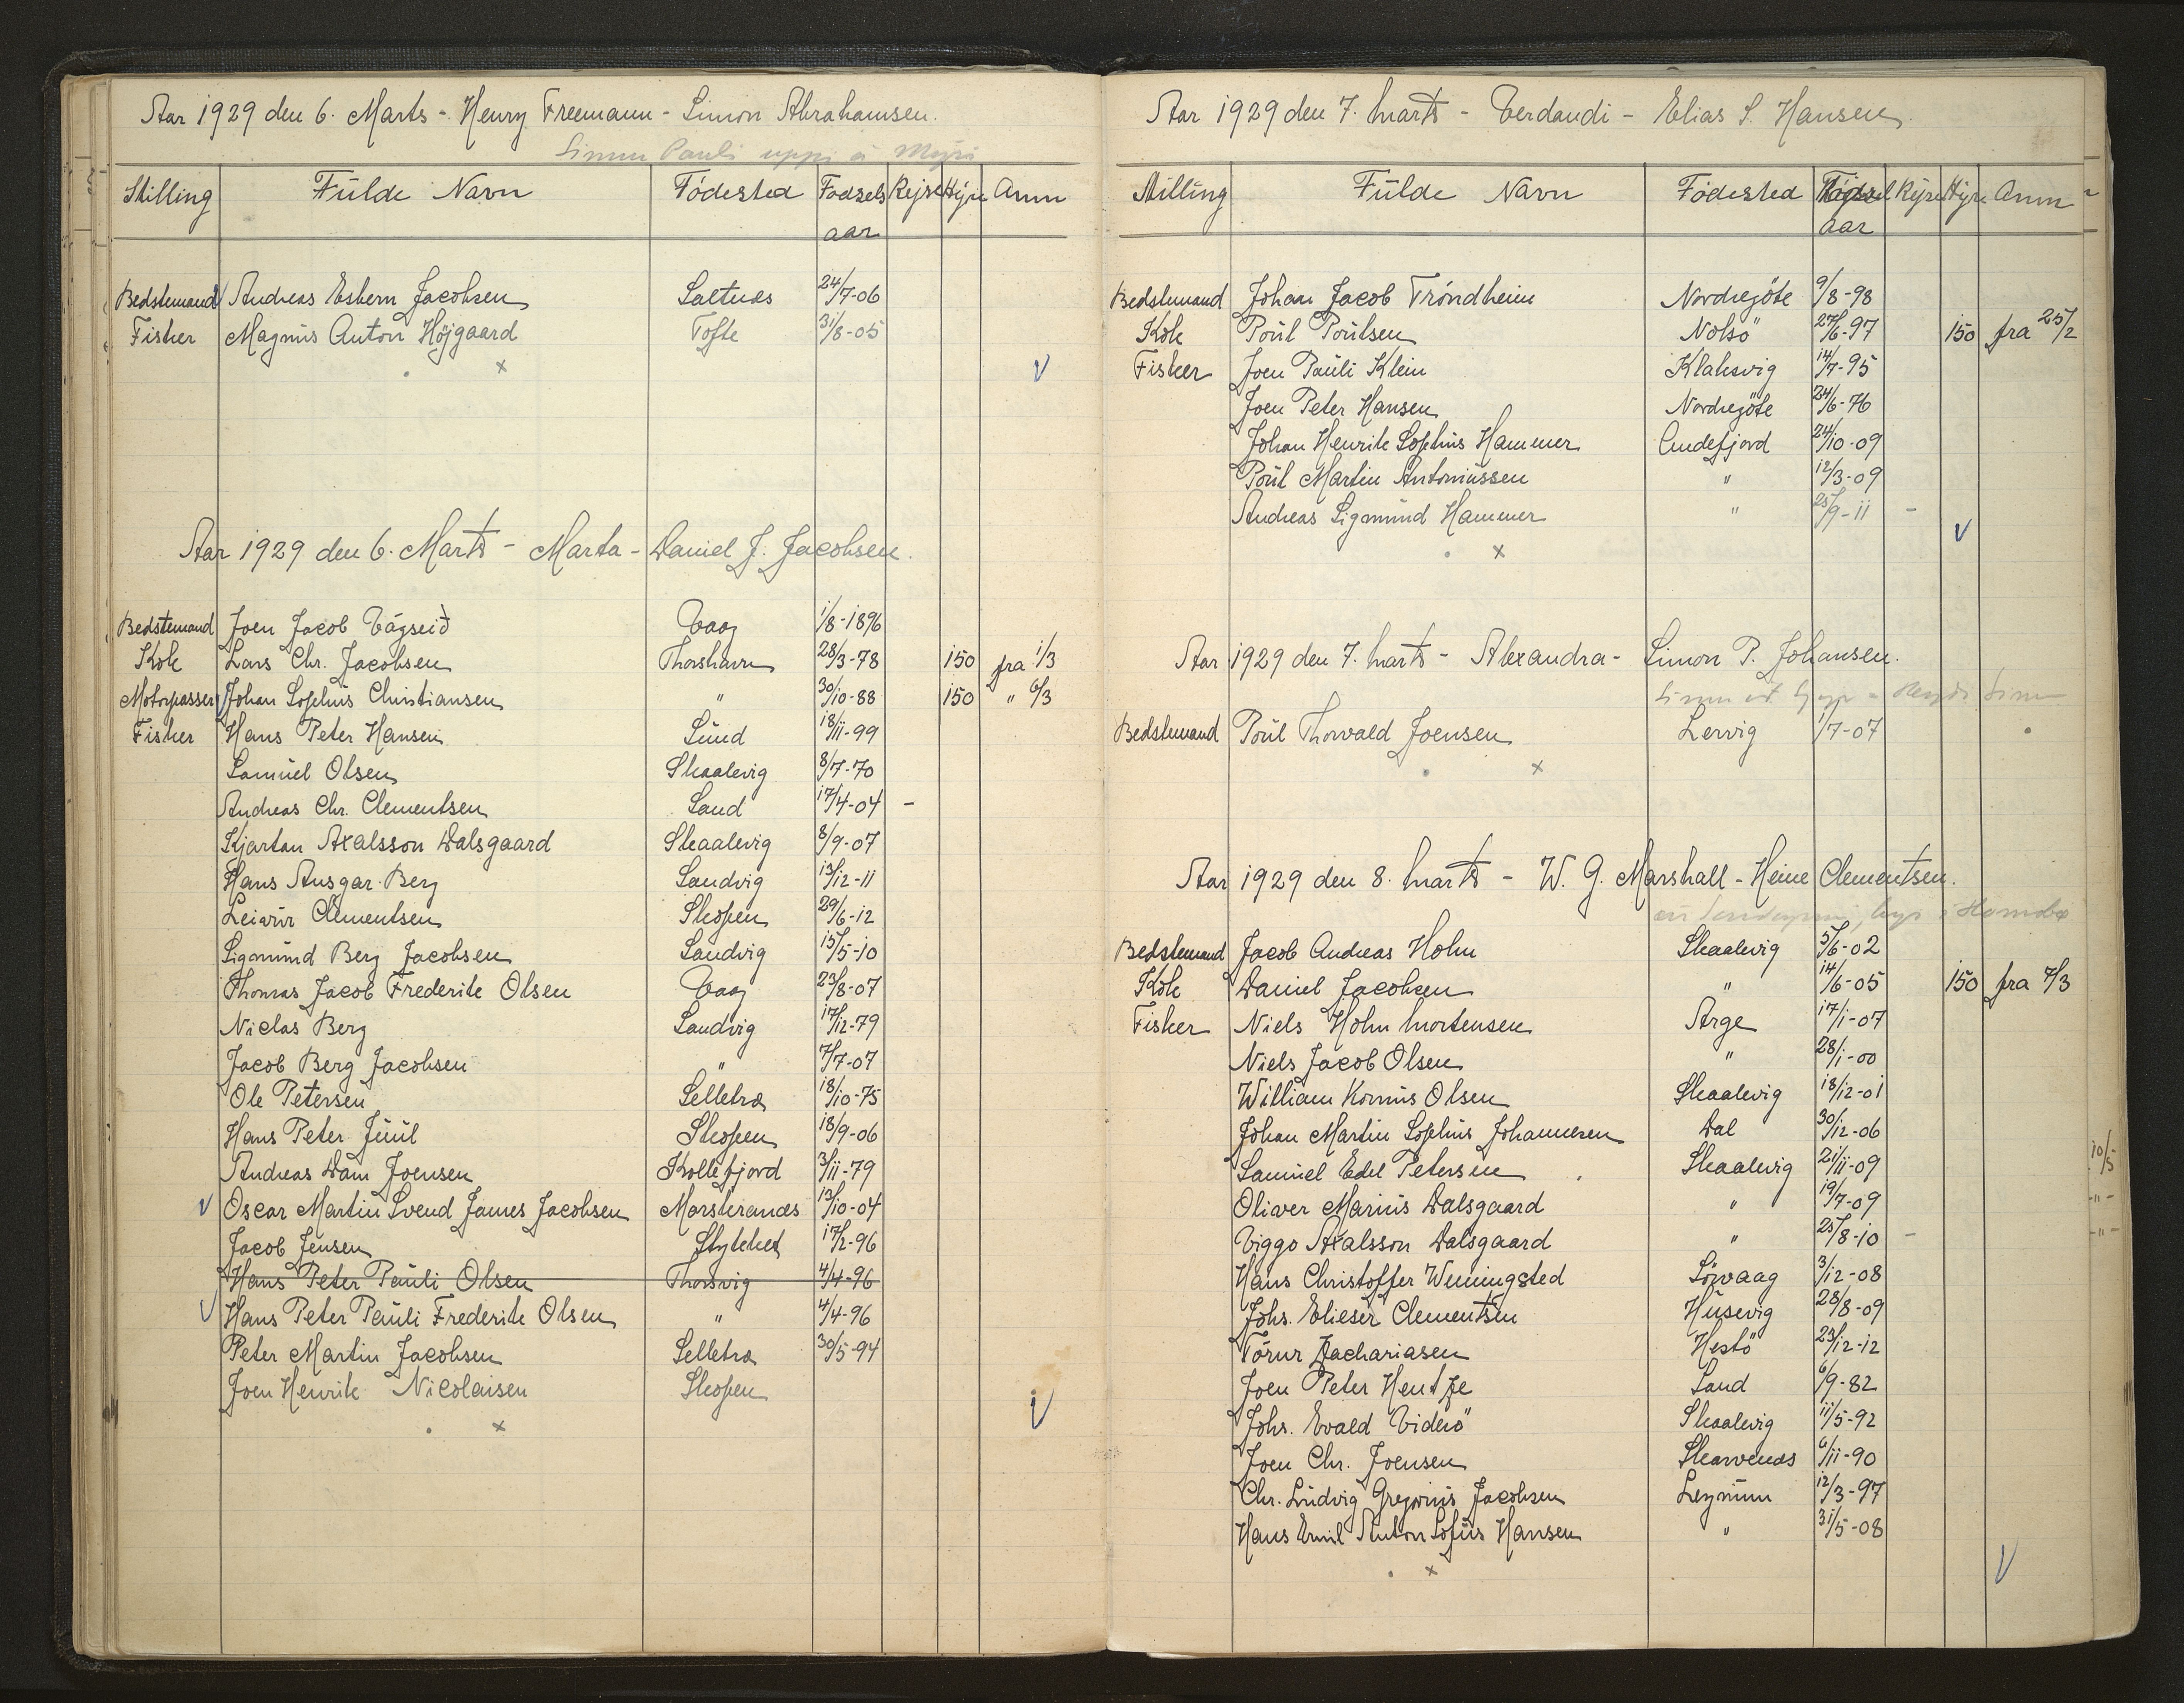 Aar 1929 den 6. Marts - Henry Freemann - Simon Abrahamsen.
Simun Pauli uppi á Mýri
Stilling Fulde Navn Födested Fødsels aar Rejse Hyre Anm
Bedstemand Andreas Esbern Jacobsen Saltnes 24/7-06
Fisker Magnus Anton Höjgaard Tofte 31/8-05
Aar 1929 den 6. Marts - Marta - Daniel J. Jacobsen.
Bedstemand Joen Jacob Vágseið Vaag 1/8-1896
Kok Lars Chr. Jacobsen Thorshavn 28/3-78 150 fra 1/3
Motorpasser Johan Sophus Christiansen " 30/10-88 150 " 6/3
Fisker Hans Peter Hansen Sund 18/11-99
Samuel Olsen Skaalevig 8/7-70
Andreas Chr. Clementsen Sand 17/4-04 -
Kjartan Axalsson Dalsgaard Skaalevig 8/9-07
Hans Ansgar Berg Sandvig 13/12-11
Leivur Clementsen Skopen 29/6-12
Sigmund Berg Jacobsen Sandvig 15/5-10
Thomas Jacob Frederik Olsen Vaag 23/8-07
Niclas Berg Sandvig 17/12-79
Jacob Berg Jacobsen " 7/7-07
Ole Petersen Selletræ 18/10-75
Hans Peter Juul Skopen 18/9-06
Andreas Dam Joensen Kollefjord 3/11-79
Oscar Martin Svend James Jacobsen Morskranes 13/10-04
Jacob Jensen Stykket 17/2-96
Hans Peter Pauli Olsen Thorsvig 4/4-96
Hans Peter Pauli Frederik Olsen " 4/4-96
Peter Martin Jacobsen Selletræ 30/5-94
Joen Henrik Nicolaisen Skopen
Aar 1929 den 7. Marts - Verdandi - Elias S. Hansen.
Stilling Fulde Navn Födested Födsel aar Rejse Hyre Anm
Bedstemand Johan Jacob Tróndheim Nordregöte 9/8-98
Kok Poul Poulsen Nolsö 27/6-97 150 fra 25/2
Fisker Joen Pauli Klein Klaksvig 14/7-95
Joen Peter Hansen Nordregöte 24/6-76
Johan Henrik Sophus Hammer Andefjord 24/10-09
Poul Martin Antoniussen " 12/3-09
Andreas Sigmund Hammer " 25/9-11 -
Aar 1929 den 7. Marts - Alexandra - Simon P. Johansen.
Bedstemand Poul Thorvald Joensen Lervig 1/7-07
Aar 1929 den 8. Marts - W. G. Marshall - Heine Clementsen.
Bedstemand Jacob Andreas Holm Skaalevig 5/6-02
Kok Daniel Jacobsen " 14/6-05 150 fra 7/3
Fisker Niels Holm Mortensen Arge 17/1-07
Niels Jacob Olsen " 28/1-00
William Kornus Olsen Skaalevig 18/12-01
Johan Martin Sophus Johannesen Dal 30/12-06
Samuel Edel Petersen Skaalevig 21/11-09
Oliver Marius Dalsgaard " 19/7-09
Viggo Axalsson Dalsgaard " 25/8-10 -
Hans Christoffer Wenningsted Sörvaag 3/12-08
Johs. Elieser Clementsen Husevig 28/8-09
Tórur Zachariasen Hestö 23/12-12
Joen Peter Hentze Sand 6/9-82
Johs. Evald Viderö Skaalevig 11/5-92
Joen Chr. Joensen Skarvenæs 6/11-90
Chr. Ludvig Gregorius Jacobsen Leynum 12/3-97
Hans Emil Anton Sofus Hansen " 31/5-08
10/5
-"-
-"-